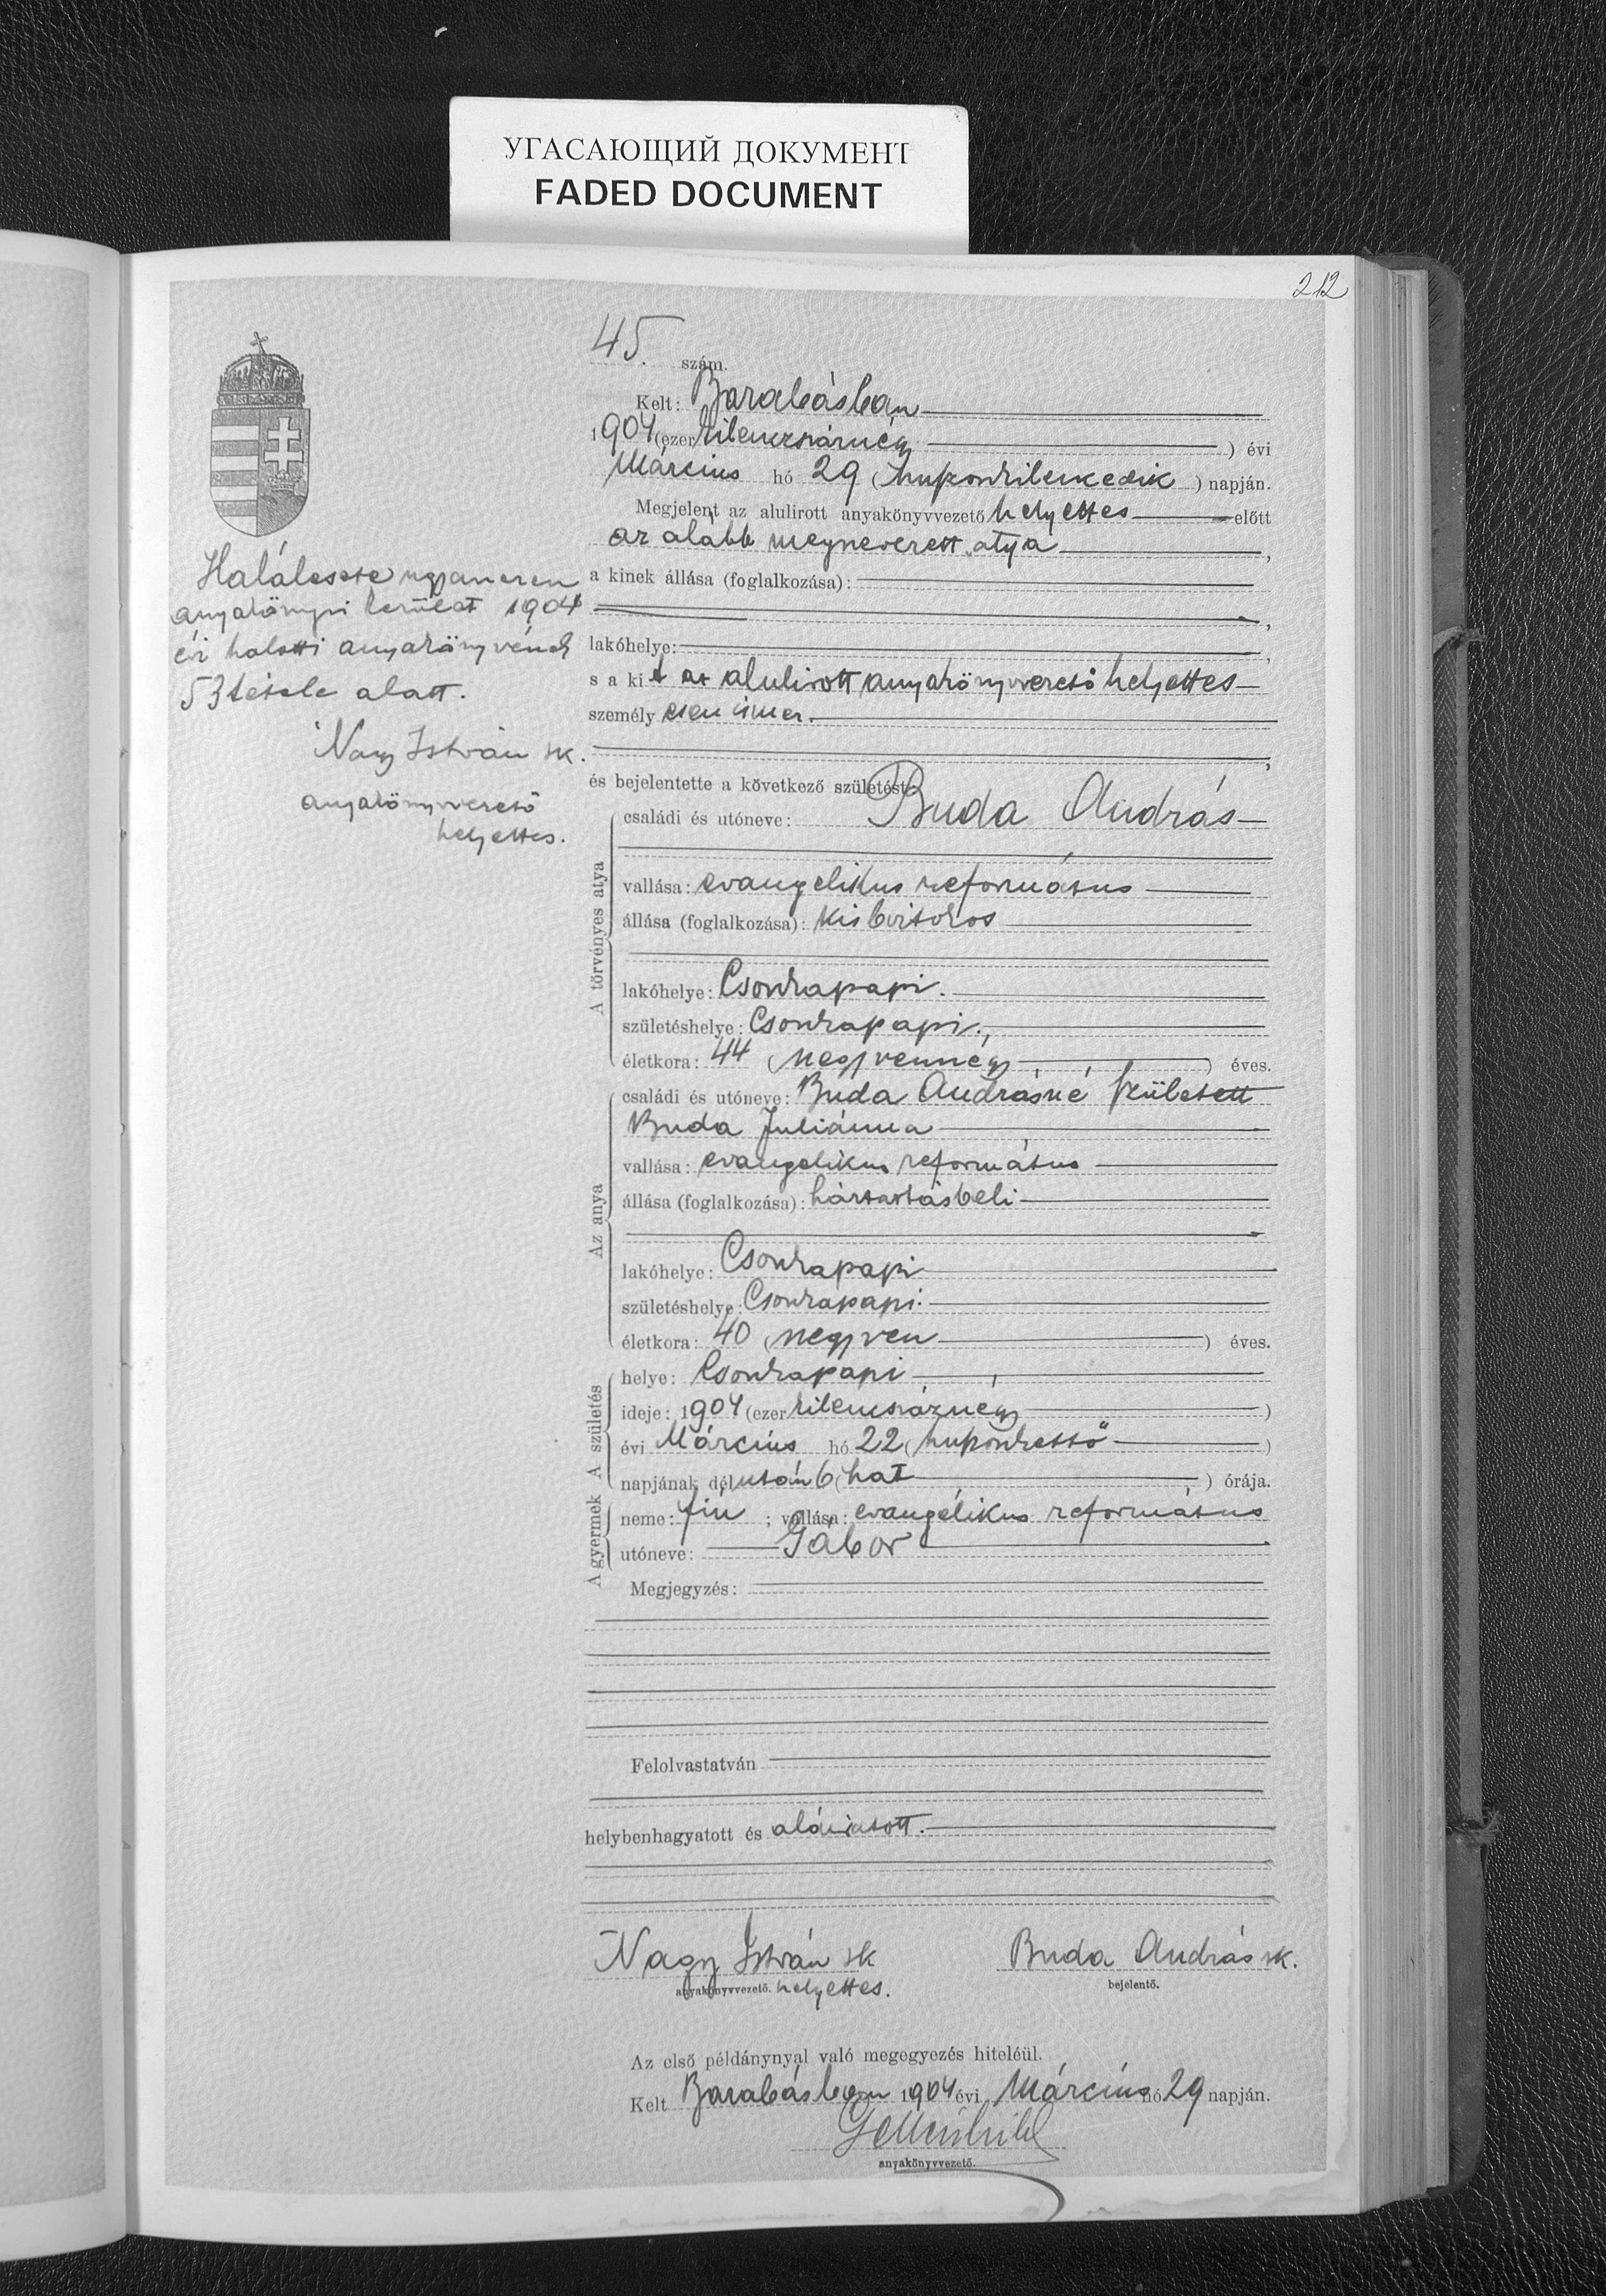 УГАСАЮЩИЙ ДОКУМЕНТ
FADED DOCUMENT
212
45. szám.
Kelt: Barabásban
1904 (ezer kilenczszáznégy ) évi
Március hó 29 (huszonkilencedik ) napján.
Megjelent az alulirott anyakönyvvezető helyettes előtt
az alább megnevezett atya ,
a kinek állása (foglalkozása):
,
lakóhelye: ,
s a kit az alulirott anyakönyvvezető helyettes
személy esen ismer.
,
és bejelentette a következő születést:
A törvényes atya
családi és utóneve: Buda András
vallása: evangelikus református
állása (foglalkozása): kisbirtokos
lakóhelye: Csonkapapi.
születéshelye: Csonkapapi.
életkora: 44 (negyvennégy ) éves.
Az anya
családi és utóneve: Buda Andrásné született
Buda Juliánna
vallása: evangelikus református
állása (foglalkozása): háztartásbeli
lakóhelye: Csonkapapi
születéshelye: Csonkapapi.
életkora: 40 (negyven ) éves.
A születés
helye: Csonkapapi
ideje: 1904 (ezer kilencszáznégy )
évi Március hó 22 (huszonkettő )
napjának délután 6 (hat ) órája.
A gyermek
neme: fiú ; vallása: evangélikus református
utóneve: Gábor
Megjegyzés:
Felolvastatván
helybenhagyatott és aláiratott.
Nagy István sk
anyakönyvvezető. helyettes.
Buda András sk.
bejelentő.
Az első példánynyal való megegyezés hiteléül.
Kelt Barabásban 1904 évi Március hó 29 napján.
anyakönyvvezető.
Halálesete ugyanezen
anyakönyvi kerület 1904
évi halotti anyakönyvének
53 tétele alatt.
Nagy István sk.
anyakönyvvezető
helyettes.